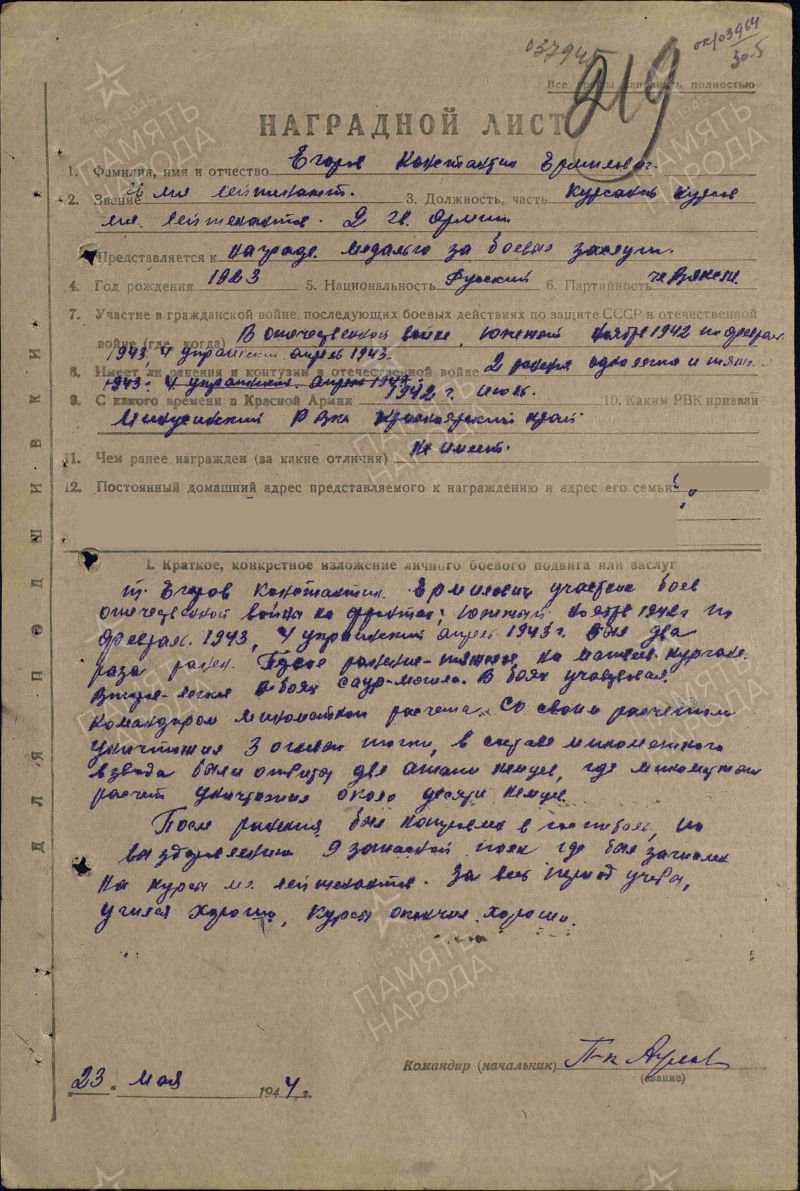 037945
03964
30.5
219
Все полностью
НАГРАДНОЙ ЛИСТ
1. Фамилия, имя и отчество Егоров Константин Ермилович
2. Звание мл лейтенант. 3. Должность, часть Курсант курсов
мл. лейтенантов. 2 гв. Армии
Представляется к награде медалью за боевые заслуги.
4. Год рождения 1923 5. Национальность Русский 6. Партийность чл ВЛКСМ.
7. Участие в гражданской войне, последующих боевых действиях по защите СССР и отечественной
войне (где, когда) В отечественной войне, южный ноябрь 1942 по феврал
1943, 4 украинский апрель 1943.
8. Имеет ли ранения и контузии в отечественной войне 2 ранен. одно легко и тяж.
1943. 4 украинский. апрел 1943.
9. С какого времени в Красной Армии 1942 г. июль. 10. Каким РВК призван
Минусинский РВК Красноярский край
11. Чем ранее награжден (за какие отличия) Не имеет.
12. Постоянный домашний адрес представляемого к награждению и адрес его семьи
I. Краткое, конкретное изложение личного боевого подвига или заслуг
т. Егоров Константин Ермилович участник боев
отечественной войны на фронтах; Южный ноябрь 1942 г по
феврал. 1943, 4 украинский апрель 1943 г. был два
раза ранен. ранение-тяжелое, на кургане.
Второе-легкое в боях саур-могила. В боях участвовал
командиром минометного расчета. Со своим расчетом
уничтожил 3 огневых точки, в составе минометного
взвода были отбиты две атаки немцев, где минометным
расчет уничтожил около десяти немцев.
После ранения был направлен в госпиталь, по
выздоровлению 9 запасной полк где был зачислен
на курсы мл. лейтенантов. За весь период учебы,
учился хорошо, курсы окончил хорошо.
Командир (начальник) П-к
(звание)
23. мая 1944 г.
ДЛЯ ПОДШИВКИ
1941-1945
ПАМЯТЬ
НАРОДА